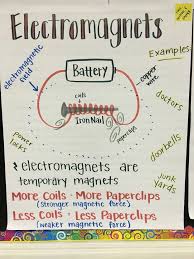 Electromagnets
Examples:
electromagnetic
field
Battery
copper
wire
coils
Iron Nail
paperclips
doctors
power
locks
doorbells
junk
yards
electromagnets are
temporary magnets
More Coils - More Paperclips
(stronger magnetic force)
Less Coils - Less Paperclips
(weaker magnetic force)